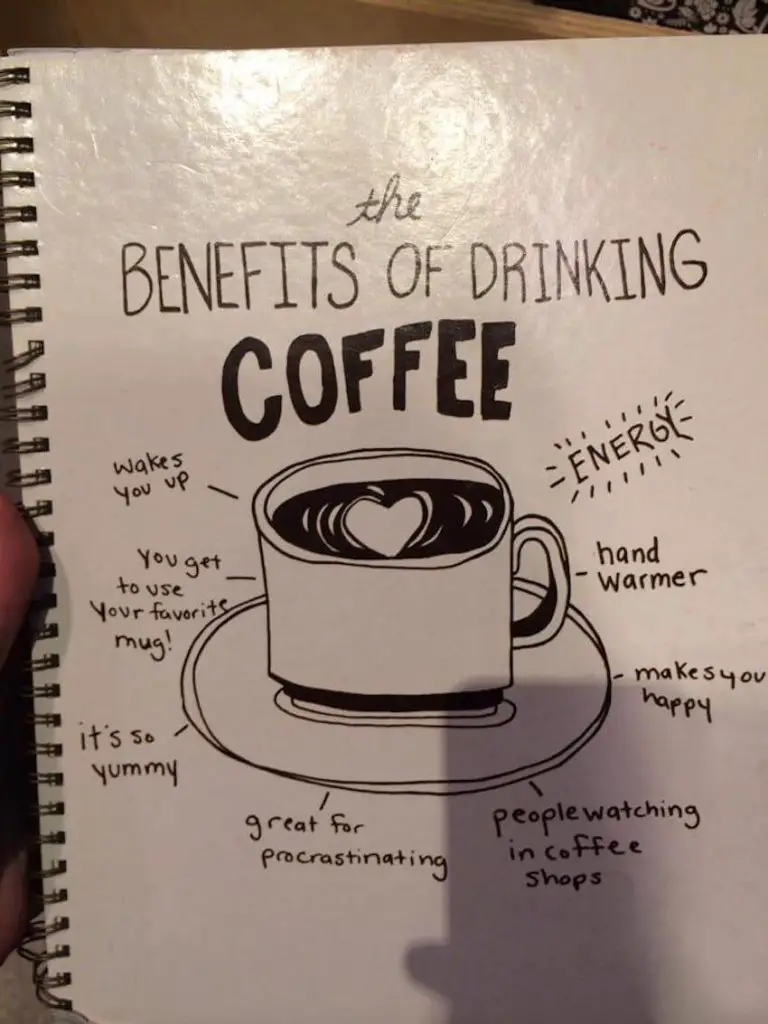 the
BENEFITS OF DRINKING
COFFEE
ENERGY
wakes
you up
You get
to use
your favorite
mug!
hand
warmer
makes you
happy
it's so
yummy
great for
procrastinating
people watching
in coffee
shops